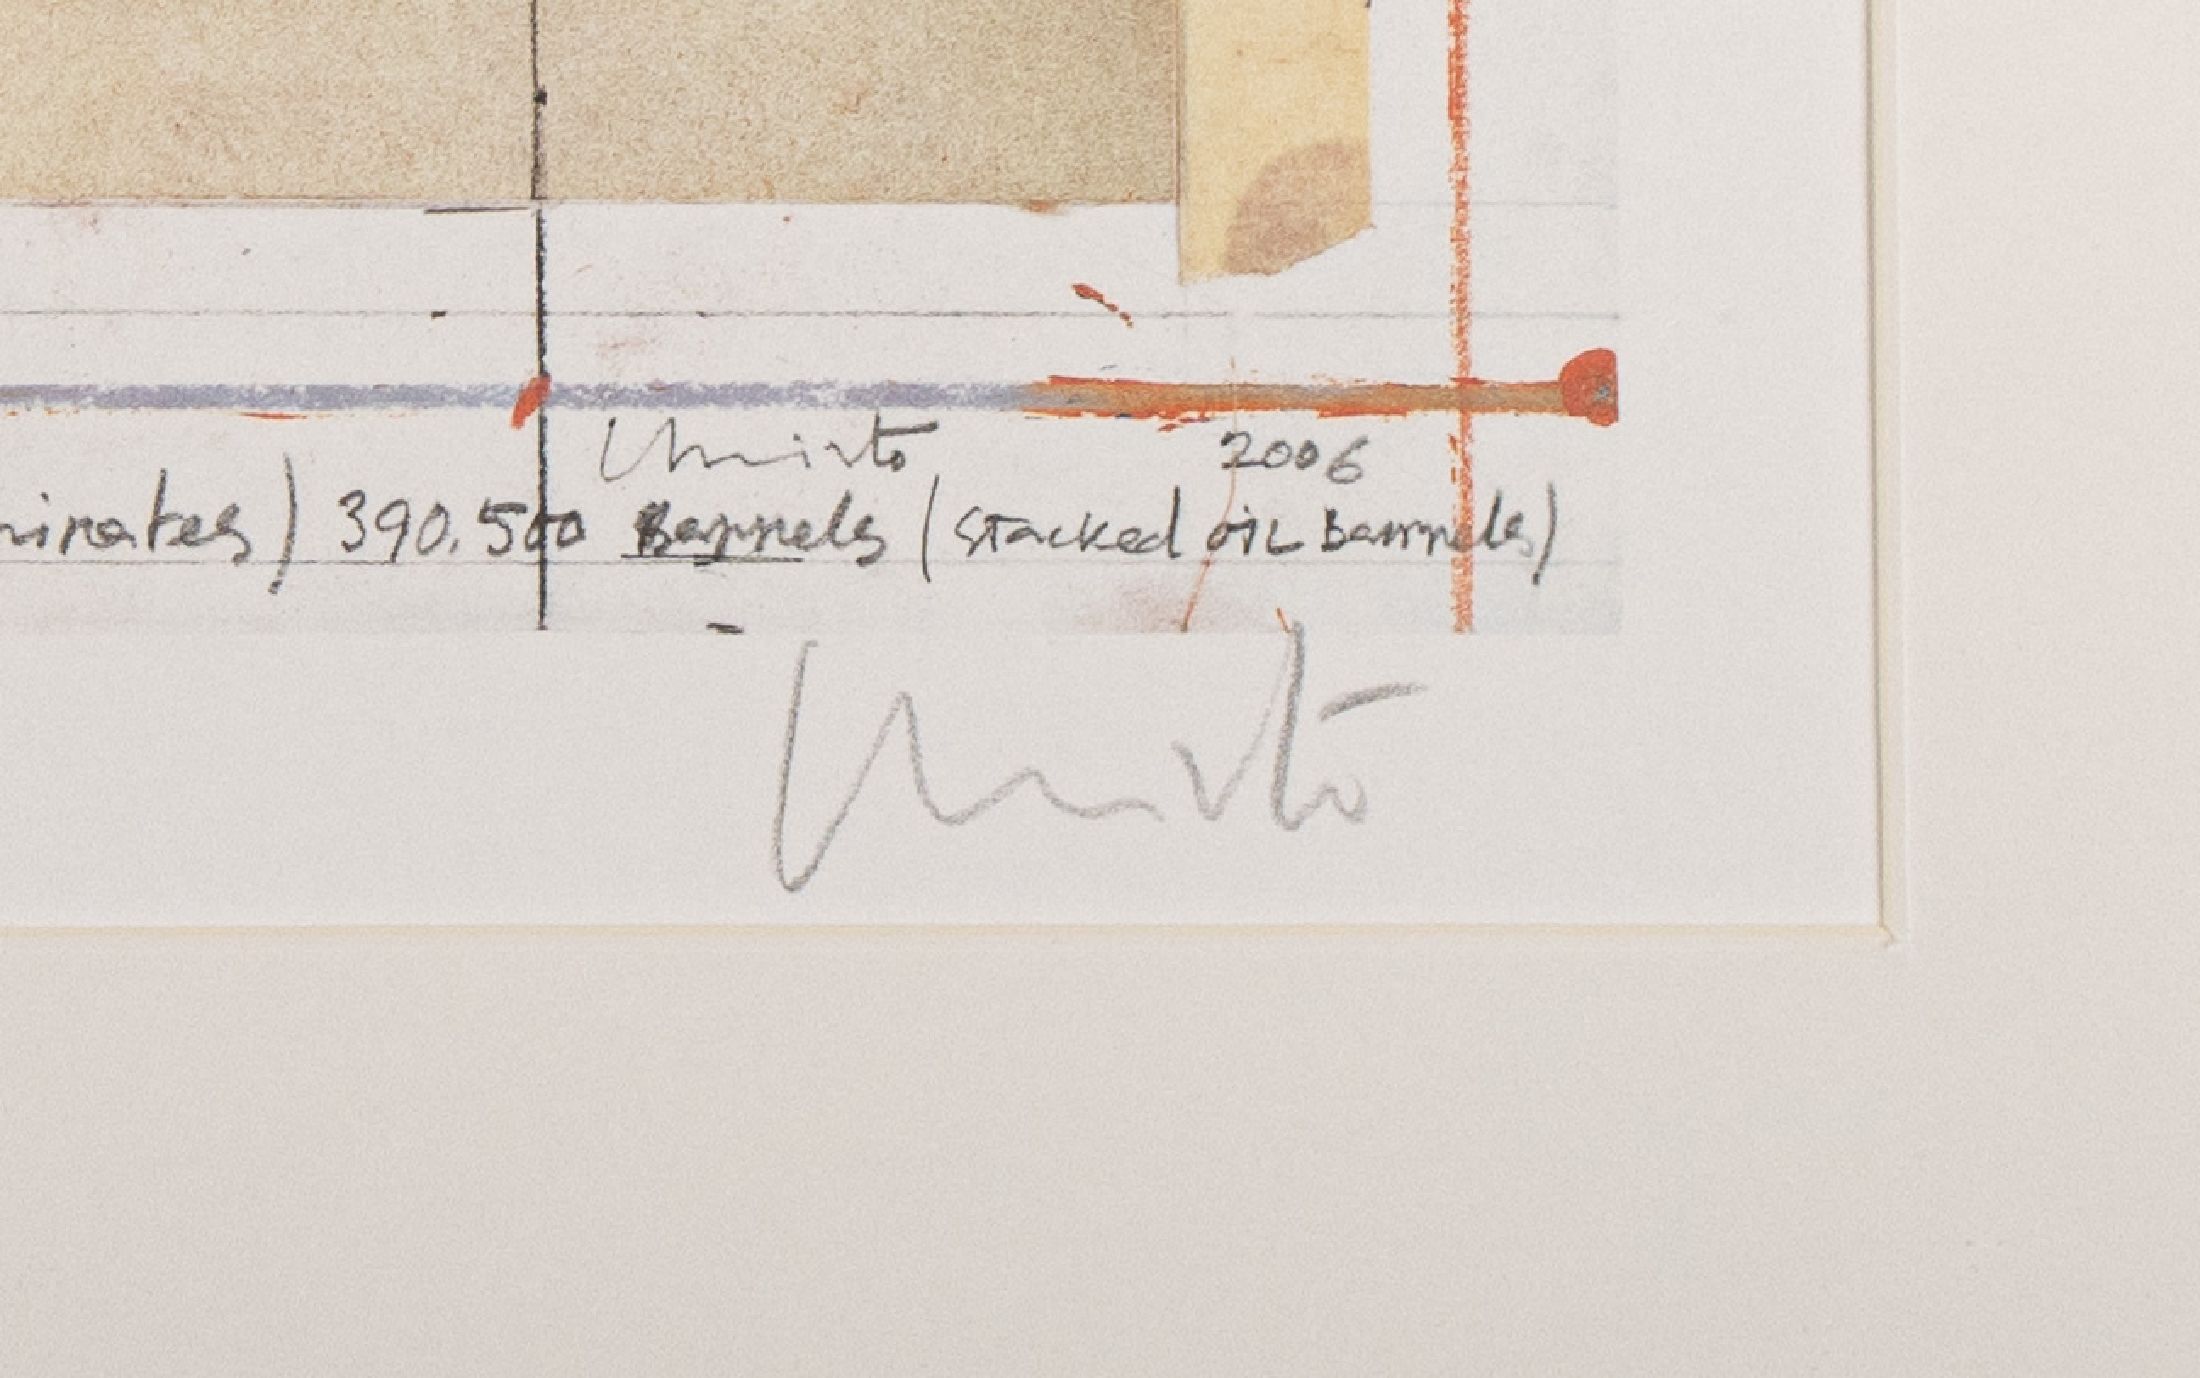 Christo 2006
mirates) 390.500 Barrels (stacked oil barrels)
Christo